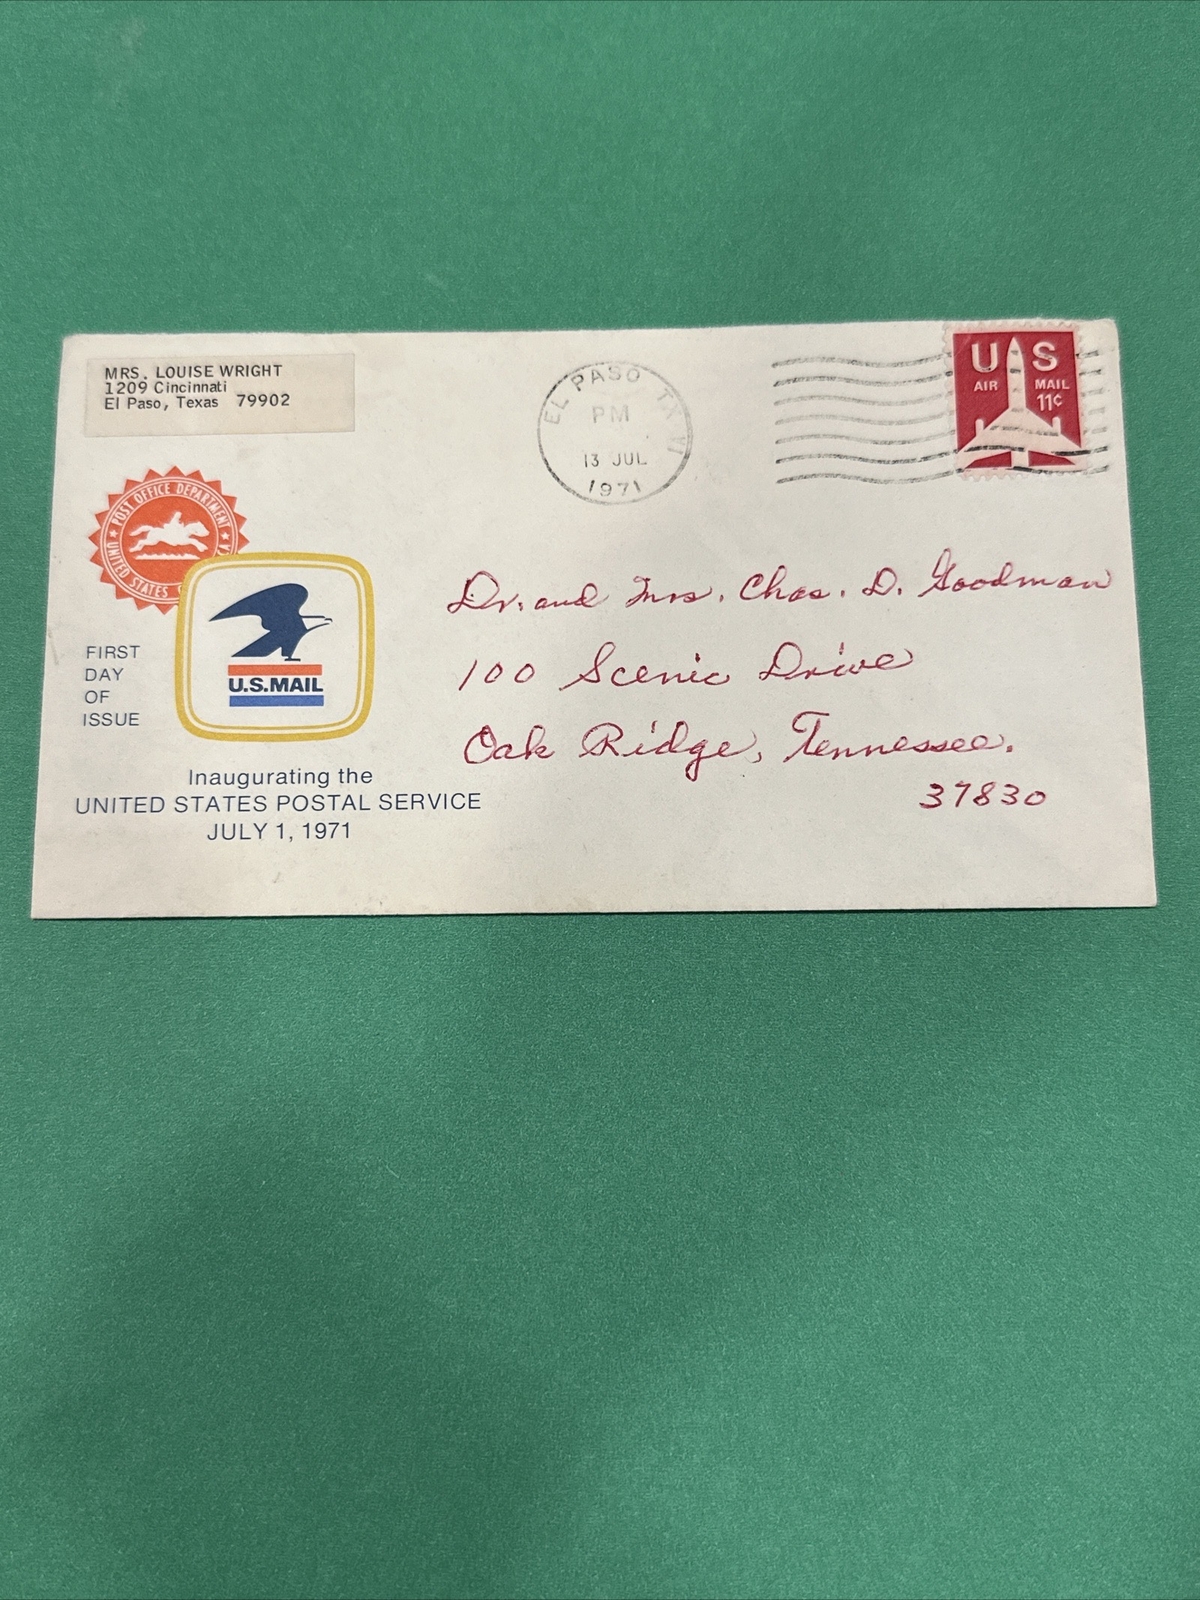 MRS. LOUISE WRIGHT
1209 Cincinnati
El Paso, Texas 79902
EL PASO TX
PM
13 JUL
1971
U S
AIR MAIL
11¢
POST OFFICE DEPARTMENT
UNITED STATES
U.S.MAIL
FIRST
DAY
OF
ISSUE
Inaugurating the
UNITED STATES POSTAL SERVICE
JULY 1, 1971
Dr. and Mrs. Chas. D. Goodman
100 Scenic Drive
Oak Ridge, Tennessee.
37830